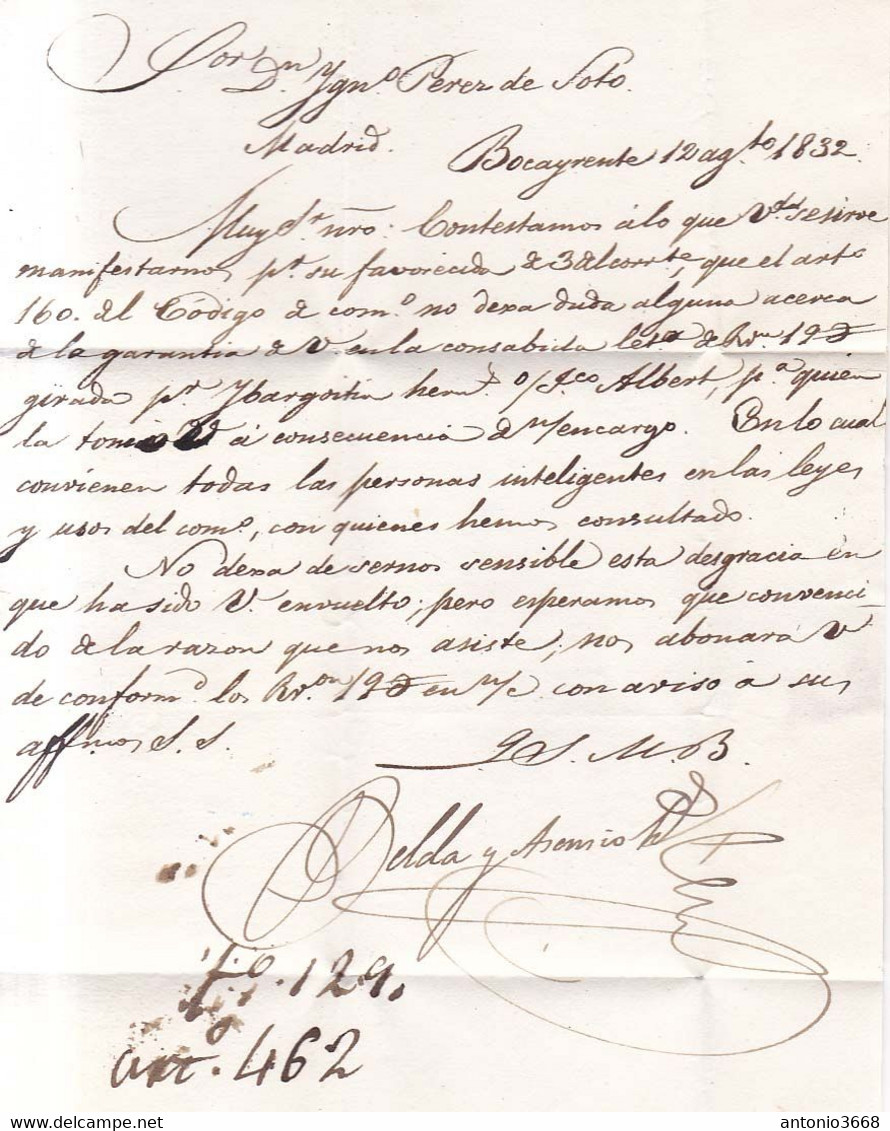 Sor Dn Ygno. Perez de Soto.
Madrid.
Bocayrente 12 agto. 1832.
Muy Sr. nro: Contestamos á lo que Vd. se sirve
manifestarnos pr. su favorecida de 3 del corrte., que el arto.
160. del Código de como. no dexa duda alguna acerca
de la garantia de V. en la consabida letra de Rvn 19
girada pr. Ybargoitia herms. o/ Fco. Albert, pa. quien
la tomó V á consecuencia de n/ encargo. En lo cual
convienen todas las personas inteligentes en las leyes
y usos del como., con quienes hemos consultado.
No dexa de sernos sensible esta desgracia en
que ha sido V. envuelto; pero esperamos que convenci-
do de la razon que nos asiste, nos abonará V
de conformd. los Rvon 19 en n/c con aviso á sus
affmos S. S.
Q S. M. B.
Belda y Asensio
fo. 129.
art. 462
antonio3668